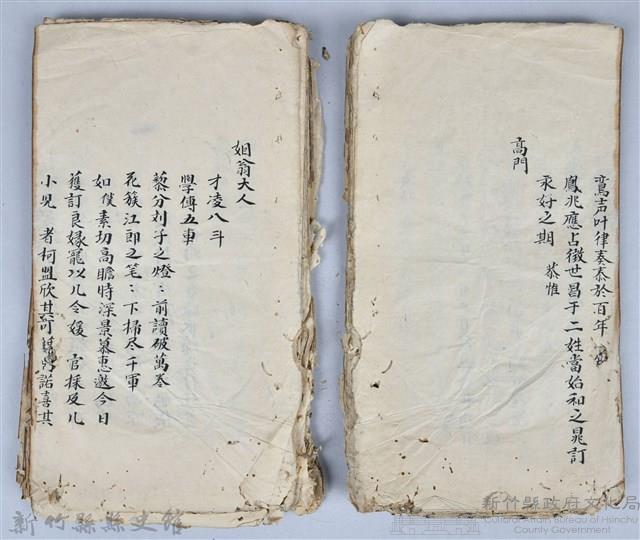 鸞声叶律奏泰於百年
鳳兆應占徵世昌于二姓當始和之晁訂
永好之期 恭惟
高門
姻翁大人
才凌八斗
學傳五車
藜分刘子之燈：前讀破萬卷
花簇江郎之笔：下掃尽千軍
如僕素切高瞻時深景慕惠邀今日
獲訂良緣寵以几令嬡 官採及几
小児 者柯盟欣其可 諾喜其
新竹縣縣史館
新竹縣政府文化局
Cultural Affairs Bureau of Hsinchu
County Government